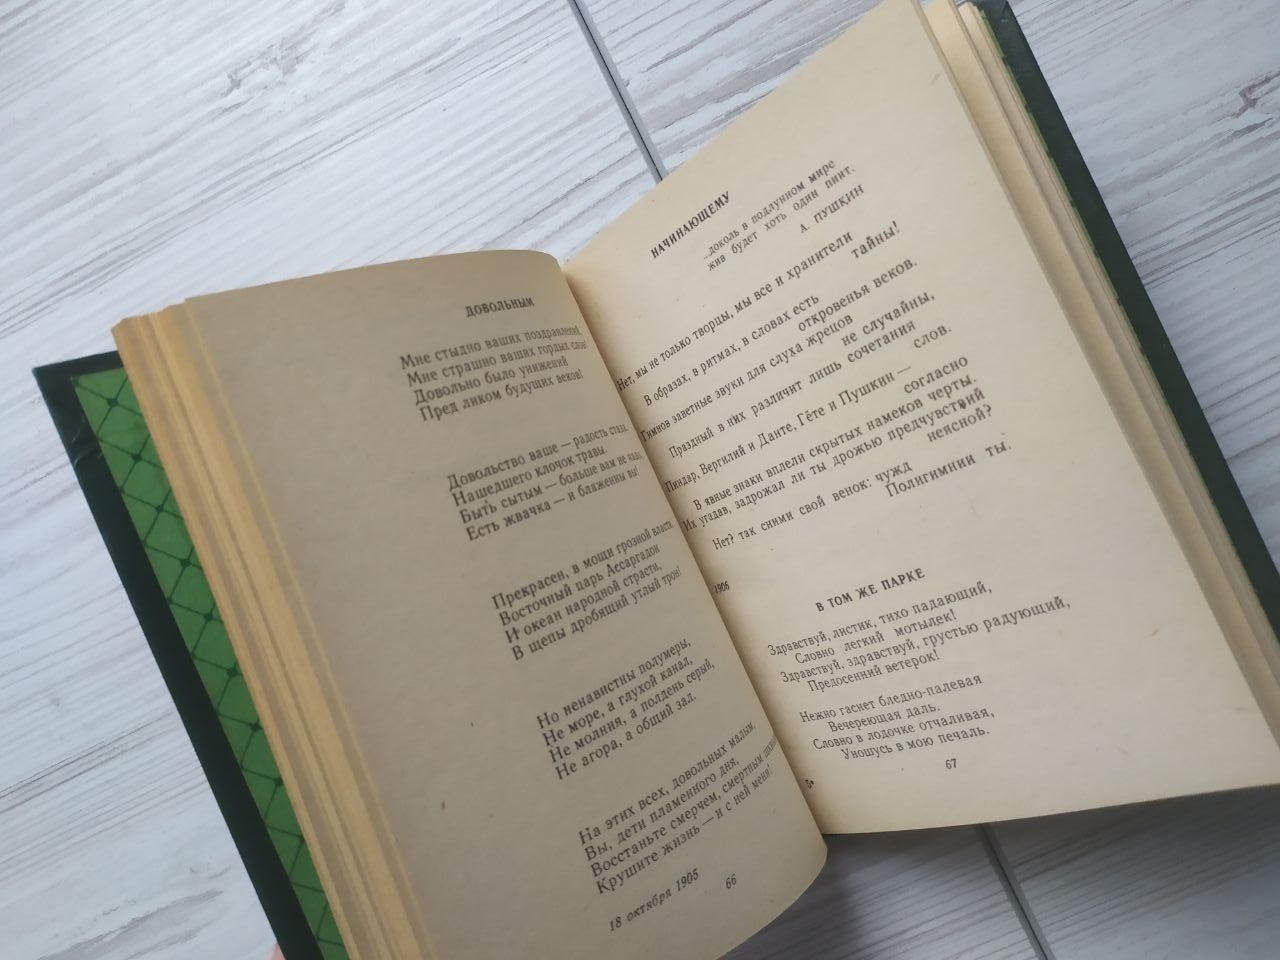 ДОВОЛЬНЫМ
Мне стыдно ваших поздравлений,
Мне страшно ваших гордых слов!
Довольно было унижений
Пред ликом будущих веков!
Довольство ваше — радость стада,
Нашедшего клочок травы.
Быть сытым — больше вам не надо,
Есть жвачка — и блаженны вы!
Прекрасен, в мощи грозной власти,
Восточный царь Ассаргадон
И океан народной страсти,
В щепы дробящий утлый трон!
Но ненавистны полумеры,
Не море, а глухой канал,
Не молния, а полдень серый,
Не агора, а общий зал.
На этих всех, довольных малым,
Вы, дети пламенного дня,
Восстаньте смерчем, смертным шквалом,
Крушите жизнь — и с ней меня!
18 октября 1905
66
НАЧИНАЮЩЕМУ
...доколь в подлунном мире
жив будет хоть один пиит.
А. ПУШКИН
Нет, мы не только творцы, мы все и хранители
тайны!
В образах, в ритмах, в словах есть
откровенья веков.
Гимнов заветные звуки для слуха жрецов
не случайны,
Праздный в них различит лишь сочетания
слов.
Пиндар, Вергилий и Данте, Гёте и Пушкин —
согласно
В явные знаки вплели скрытых намеков черты.
Их угадав, задрожал ли ты дрожью предчувствий
неясной?
Нет? так сними свой венок: чужд
Полигимнии ты.
1906
В ТОМ ЖЕ ПАРКЕ
Здравствуй, листик, тихо падающий,
Словно легкий мотылек!
Здравствуй, здравствуй, грустью радующий,
Предосенний ветерок!
Нежно гаснет бледно-палевая
Вечереющая даль.
Словно в лодочке отчаливая,
Уношусь в мою печаль.
5*
67